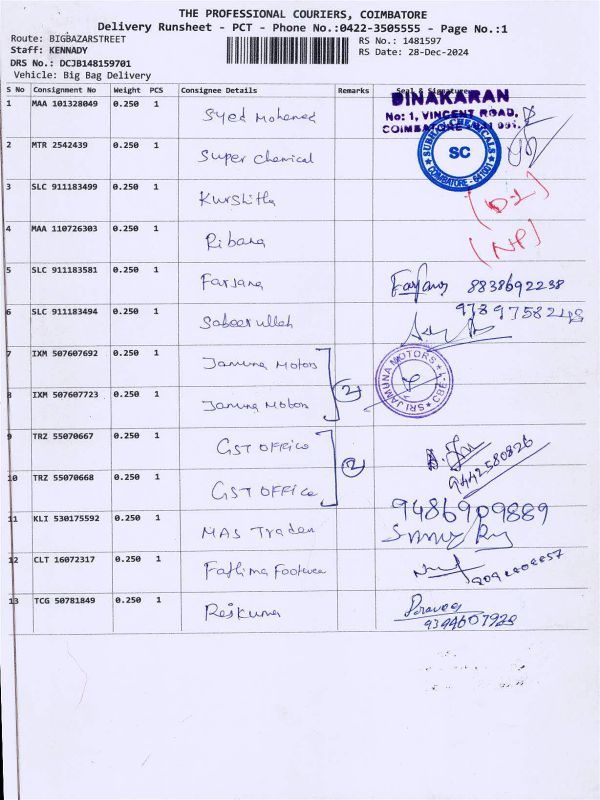 THE PROFESSIONAL COURIERS, COIMBATORE
Delivery Runsheet - PCT - Phone No.:0422-3505555 - Page No.:1
Route: BIGBAZARSTREET RS No.: 1481597
Staff: KENNADY RS Date: 28-Dec-2024
DRS No.: DCJB148159701
Vehicle: Big Bag Delivery
S No Consignment No Weight PCS Consignee Details Remarks Seal & Signature
DINAKARAN
No: 1, VINCENT ROAD,
1 MAA 101328049 0.250 1 Syed Mohamed
SUBHA CHEMICALS
SC
COIMBATORE - 641001
2 MTR 2542439 0.250 1 Super Chemical
3 SLC 911183499 0.250 1 Kurshitha (D-L)
4 MAA 110726303 0.250 1 Ribana (NP)
5 SLC 911183581 0.250 1 Farjana Farjana 8838692238
6 SLC 911183494 0.250 1 Sabeerullah 9789758248
7 IXM 507607692 0.250 1 Jamuna Motors
2
SRI JAMUNA MOTORS
CBE-1
8 IXM 507607723 0.250 1 Jamuna Motors
9 TRZ 55070667 0.250 1 GST OFFICE
2
9442580826
10 TRZ 55070668 0.250 1 GST OFFICE
11 KLI 530175592 0.250 1 MAS Trader 9486909889
12 CLT 16072317 0.250 1 Fathima Footwear
13 TCG 50781849 0.250 1 Rejkumar
9394607928